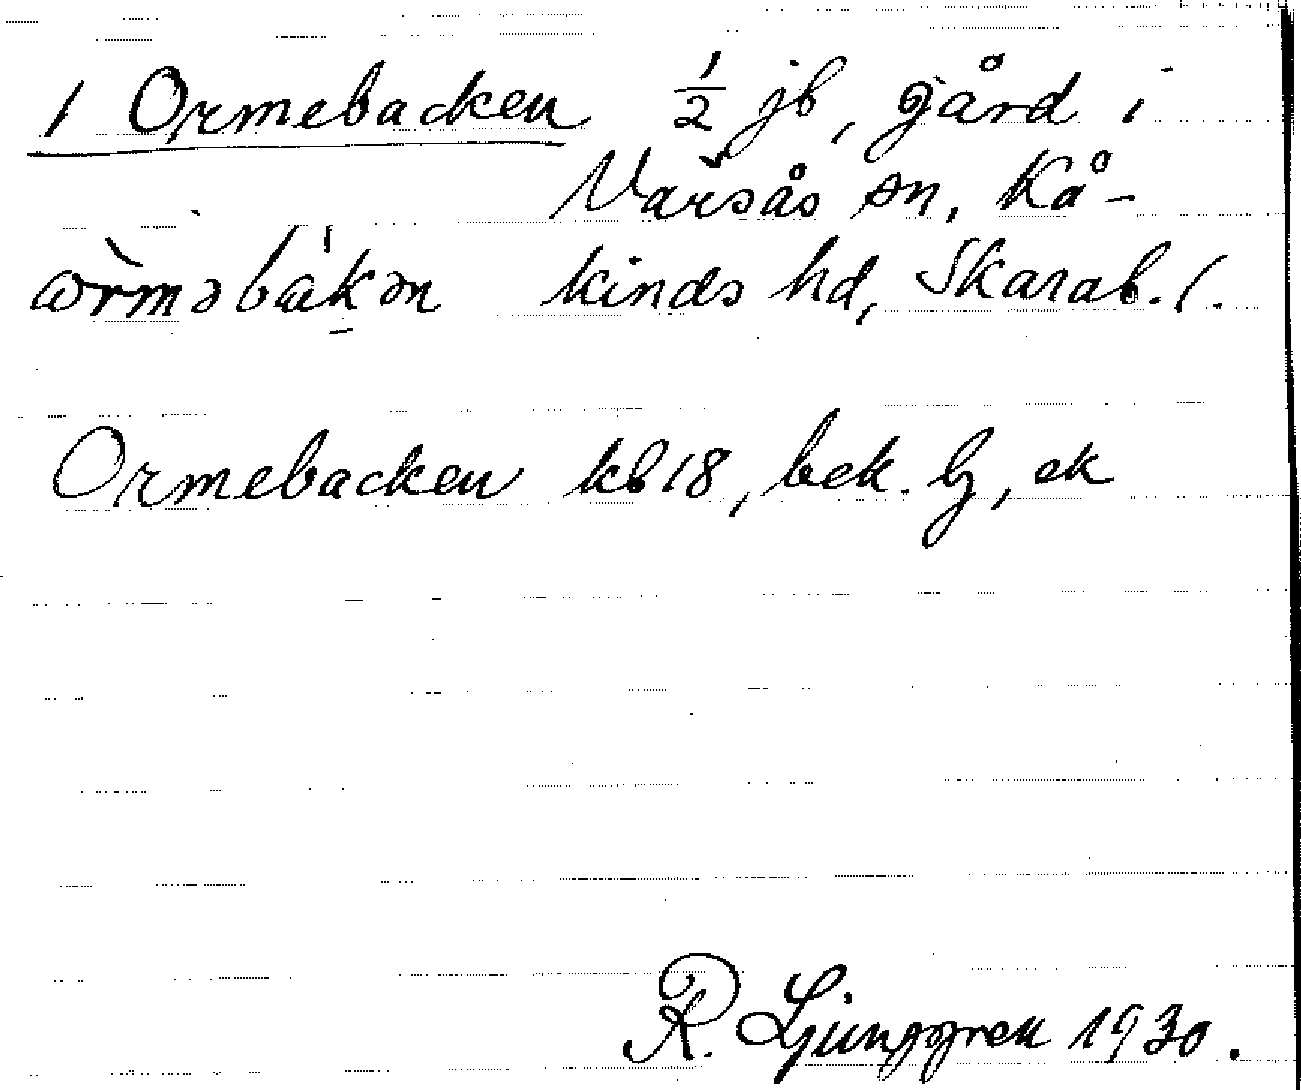 1 Ormebacken ½ jb, gård i
Varsås sn, Kå-
kinds hd, Skarab. l.
Ormebacken kb 18, bek. Lj, ek
R. Ljunggren 1930.